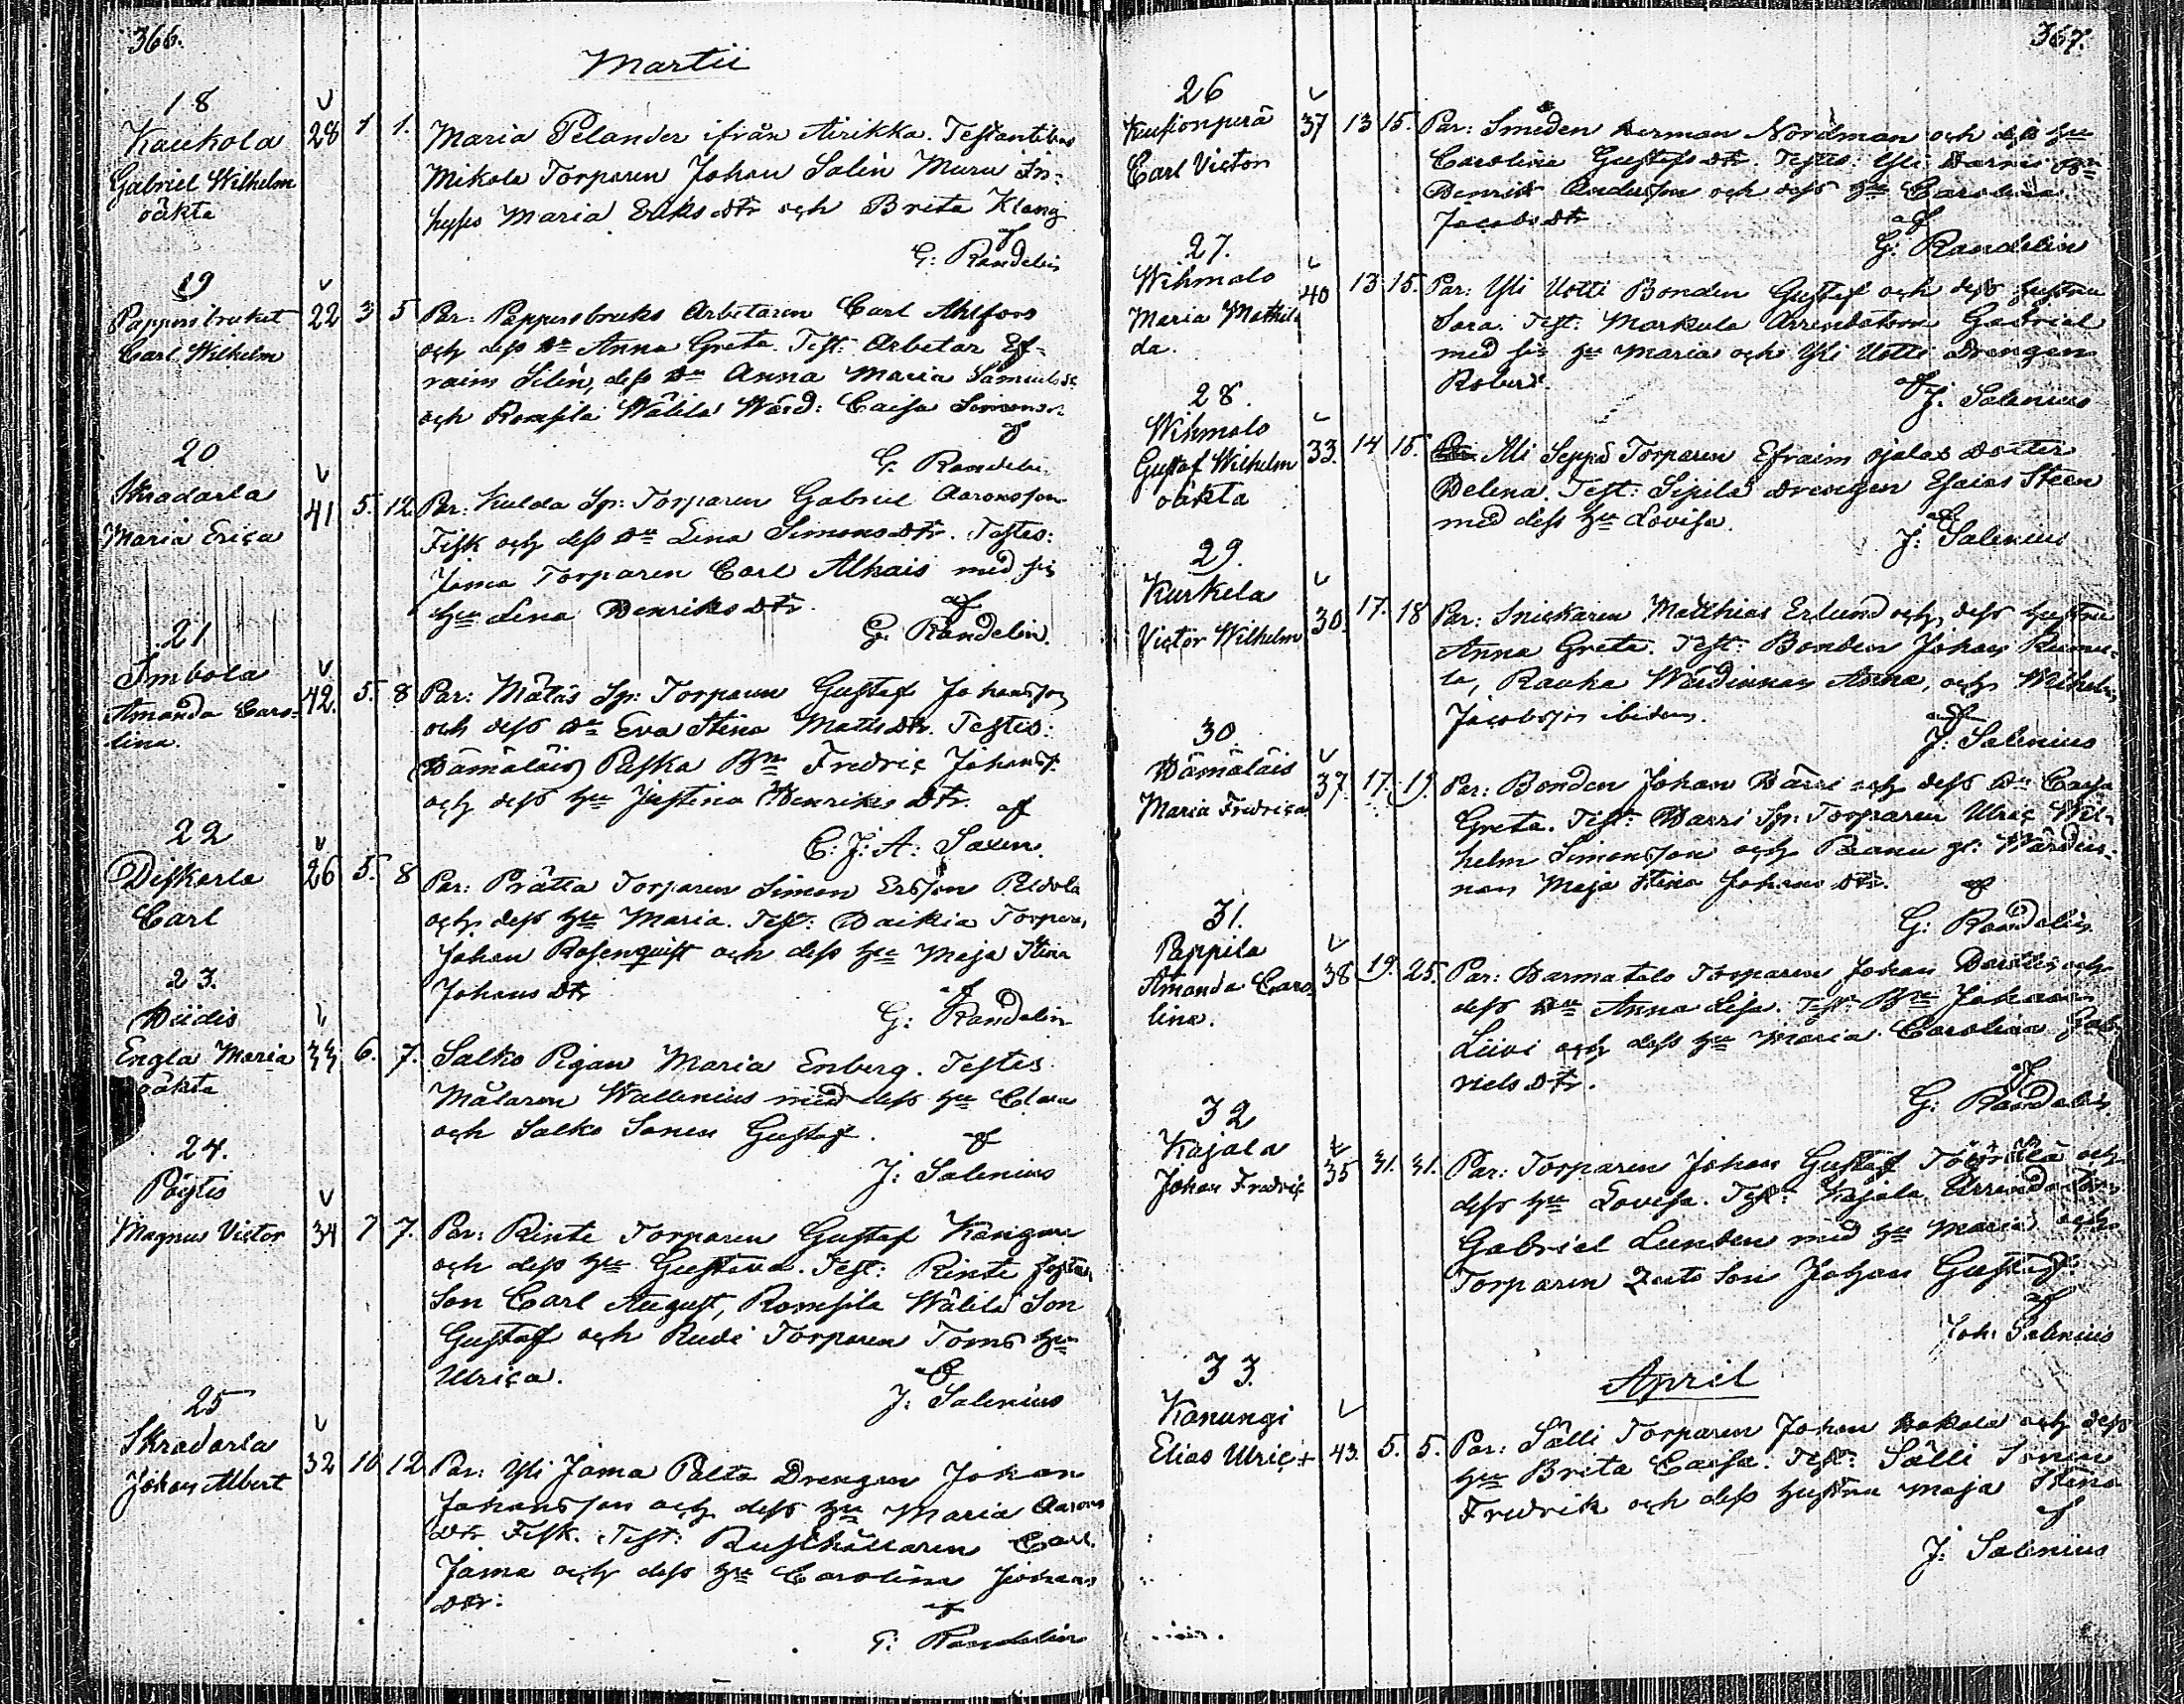 366.
Martii
18
Kaukola 28 1 1. Maria Pelander ifrån Airikka. Testantibus
Gabriel Wilhelm Mikola Torparen Johan Salin Muru In-
oäkta hyses Maria Eriksdtr och Brita Klang
af
G: Randelin
19
Pappersbruket 22 3 5 Par: Pappersbruks Arbetaren Carl Ahlfors
Carl Wilhelm och dess Hu Anna Greta. Test: Arbetar Ef-
raim Silén, dess Hu Anna Maria Samuelsdr
och Romsila Wälilä Wärd: Caisa Simonsdr
af
G. Randelin
20
Skradarla 41 5. 12 Par: Kulda Sp: Torparen Gabriel Aaronsson
Maria Erica Fisk och dess Hu Lina Simonsdtr. Testes:
Jama Torparen Carl Alhais med sin
Hu Lena Henriksdtr.
af
G: Randelin.
21
Imbola 42. 5. 8 Par: Mätäs Sp: Torparen Gustaf Johansson
Amanda Caro- och dess Hu Eva Stina Matsdtr. Testes:
lina. Hämäläis Paska Bn Fredric Johanss.
och dess Hu Justina Henriksdtr.
af
C: J: A: Saxen.
22
Diskarla 26 5. 8 Par: Prättä Torparen Simon Ersson Peldola
Carl och dess Hu Maria. Test: Haikia Torparen
Johan Rosenquist och dess Hu Maja Stina
Johansdtr
af
G: Randelin
23.
Hiidis
Engla Maria 33 6. 7. Salko Pigan Maria Enberg. Testes
oäkta Målaren Wallenius med dess Hu Clara
och Salko Sonen Gustaf.
af
J: Salenius
24.
Pöytis
Magnus Victor 34 7 7. Par: Rinte Torparen Gustaf Kangas
och dess Hu Gustava. Test: Rinte Foster
Son Carl August, Romsila Wälilä Son
Gustaf och Rudi Torparen Toms Hu
Ulrica.
af
J: Salenius
25
Skradarla 32 10 12 Par: Yli Jama Palta Drengen Johan
Johan Albert Johansson och dess Hu Maria Aarons
dtr Fisk. Test: Rusthållaren Carl
Jama och dess Hu Carolina Johans
dtr:
af
G: Randelin
367.
26
Carl Victor 37 13 15. Par: Smeden Herman Nordman och dess Hu
Carolina Gustafsdtr. Testes:
Henrik Andersson och dess Hu Carolina
Jacobsdtr
af
G: Randelin
27.
Wihmalo 40 13 15. Par: Yli Uotti Bonden Gustaf och dess hustru
Maria Mathil Sara. Test: Markula Arrendatorn Gabriel
da. med sin Hu Maria och Yli Uotti Drengen
Robert.
af
J: Salenius
28.
Wihmalo 33. 14 15. Ali Seppä Torparen Efraim Ojalas dotter
Gustaf Wilhelm Helena. Test: Sipilä Drengen Esaias Steen
oäkta med dess Hu Lovisa.
af
J: Salenius
29.
Kurkela 30. 17. 18 Par: Snickaren Matthias Erlund och dess hustru
Victor Wilhelm Anna Greta. Test: Bonden Johan
la, Rauha Wärdinnan Anna, och Wilhelm
Jacobsson ibidem.
af
J: Salenius
30.
Hämäläis 37. 17. 19. Par: Bonden Johan Harri och dess Hu Caisa
Maria Fredrica Greta. Test: Harri Sp: Torparen Ulric Wil-
helm Simonsson och Ranu gl: Wärdin-
nan Maja Stina Johansdtr.
af
G: Randelin
31.
Pappila 38 19. 25. Par: Harmatalo Torparen Johan
Amanda Caro- dess Hu Anna Lisa. Test: Bn Johan
lina. Liivi och dess Hu Maria Carolina Gab-
rielsdtr.
af
G: Randelin
32
Kajala 35 31. 31. Par: Torparen Johan Gustaf och
Johan Fredric dess Hu Lovisa. Test: Kajala Arrendatorn
Gabriel Lunden med Hu Maria och
Torparen Son Johan Gustaf.
af
Joh: Salenius
April
33.
Kanungi
Elias Ulric + 43. 5. 5. Par: Sälli Torparen Johan Hakala och dess
Hu Brita Caisa. Test: Sälli Sonen
Fredrik och dess hustru Maja Stina
af
J: Salenius